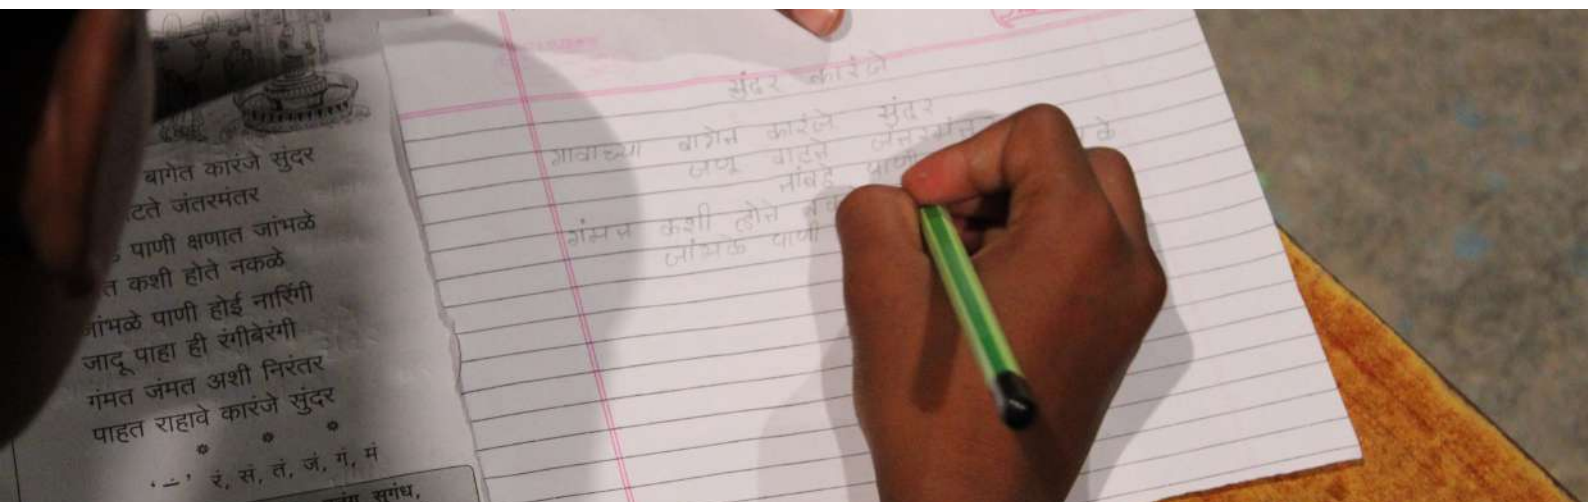 बागेत कारंजे सुंदर
टते जंतरमंतर
पाणी क्षणात जांभळे
त कशी होते नकळे
जांभळे पाणी होई नारिंगी
जादू पाहा ही रंगीबेरंगी
गंमत जंमत अशी निरंतर
पाहत राहावे कारंजे सुंदर
‘ – ’ रं, सं, तं, जं, गं, मं
सुगंध,
सुंदर कारंजे
गावाच्या बागेत कारंजे सुंदर
जणू वाटते जंतरमंतर
तांबडे पाणी
गंमत कशी होते
जांभळे पाणी